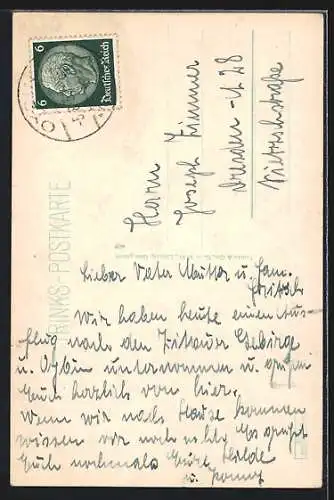 6 Deutsches Reich 6
Herrn
Joseph Zimmer
Dresden-A 28
RINKS-POSTKARTE
Lieber Vater Mutter u. Fam.
Wir haben heute einen Aus-
flug nach dem Zittauer Gebirge
u. Oybin unternommen u. grüßen
Euch herzlich von hier.
Wenn wir nach Hause kommen
wissen wir noch nicht. Es grüßt
Euch nochmals Eure Hilde
u.